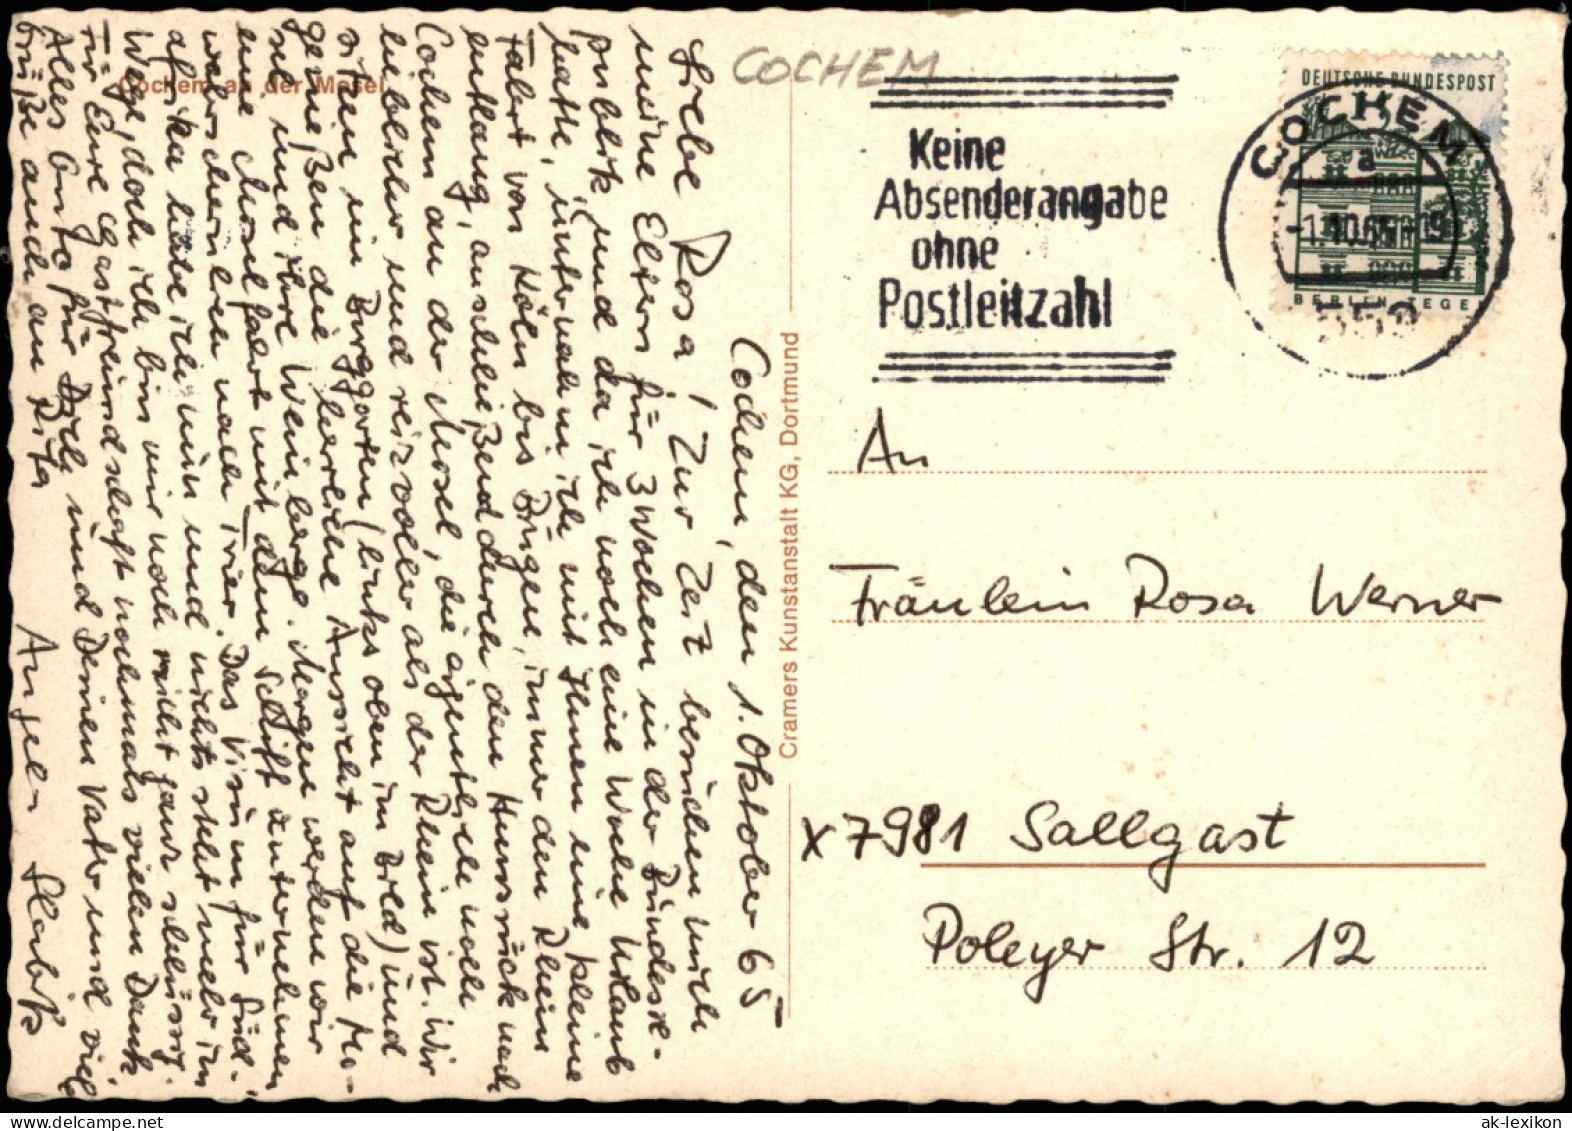 COCHEM
Cochem an der Mosel
Cochem, den 1. Oktober 65
Liebe Rosa! Zur Zeit besuchen mich
meine Eltern für 3 Wochen in der Bundesre-
publik, und da ich noch eine Woche Urlaub
hatte, unternahm ich mit Ihnen eine kleine
Fahrt von Köln bis Bingen, immer den Rhein
entlang, anschließend durch den Hunsrück nach
Cochem an der Mosel, die eigentlich noch
lieblicher und reizvoller als der Rhein ist. Wir
sitzen im Burggarten (links oben im Bild) und
genießen die herrliche Aussicht auf die Mo-
sel und ihre Weinberge. Morgen werden wir
eine Moselfahrt mit dem Schiff unternehmen
wahrscheinlich nach Trier. Das Visum für Süd-
afrika habe ich nun und nichts steht mehr im
Wege, doch ich bin mir noch nicht ganz schlüssig.
Für Eure Gastfreundschaft nochmals vielen Dank
Alles Gute für Dich und Deinen Vater und viele
Grüße auch an Rita
Cramers Kunstanstalt KG, Dortmund
Keine
Absenderangabe
ohne
Postleitzahl
DEUTSCHE BUNDESPOST
BERLIN-TEGEL
COCHEM
a
-1.10.65-19
559
An
Fräulein Rosa Werner
x 7981 Sallgast
Poleyer Str. 12
ak-lexikon